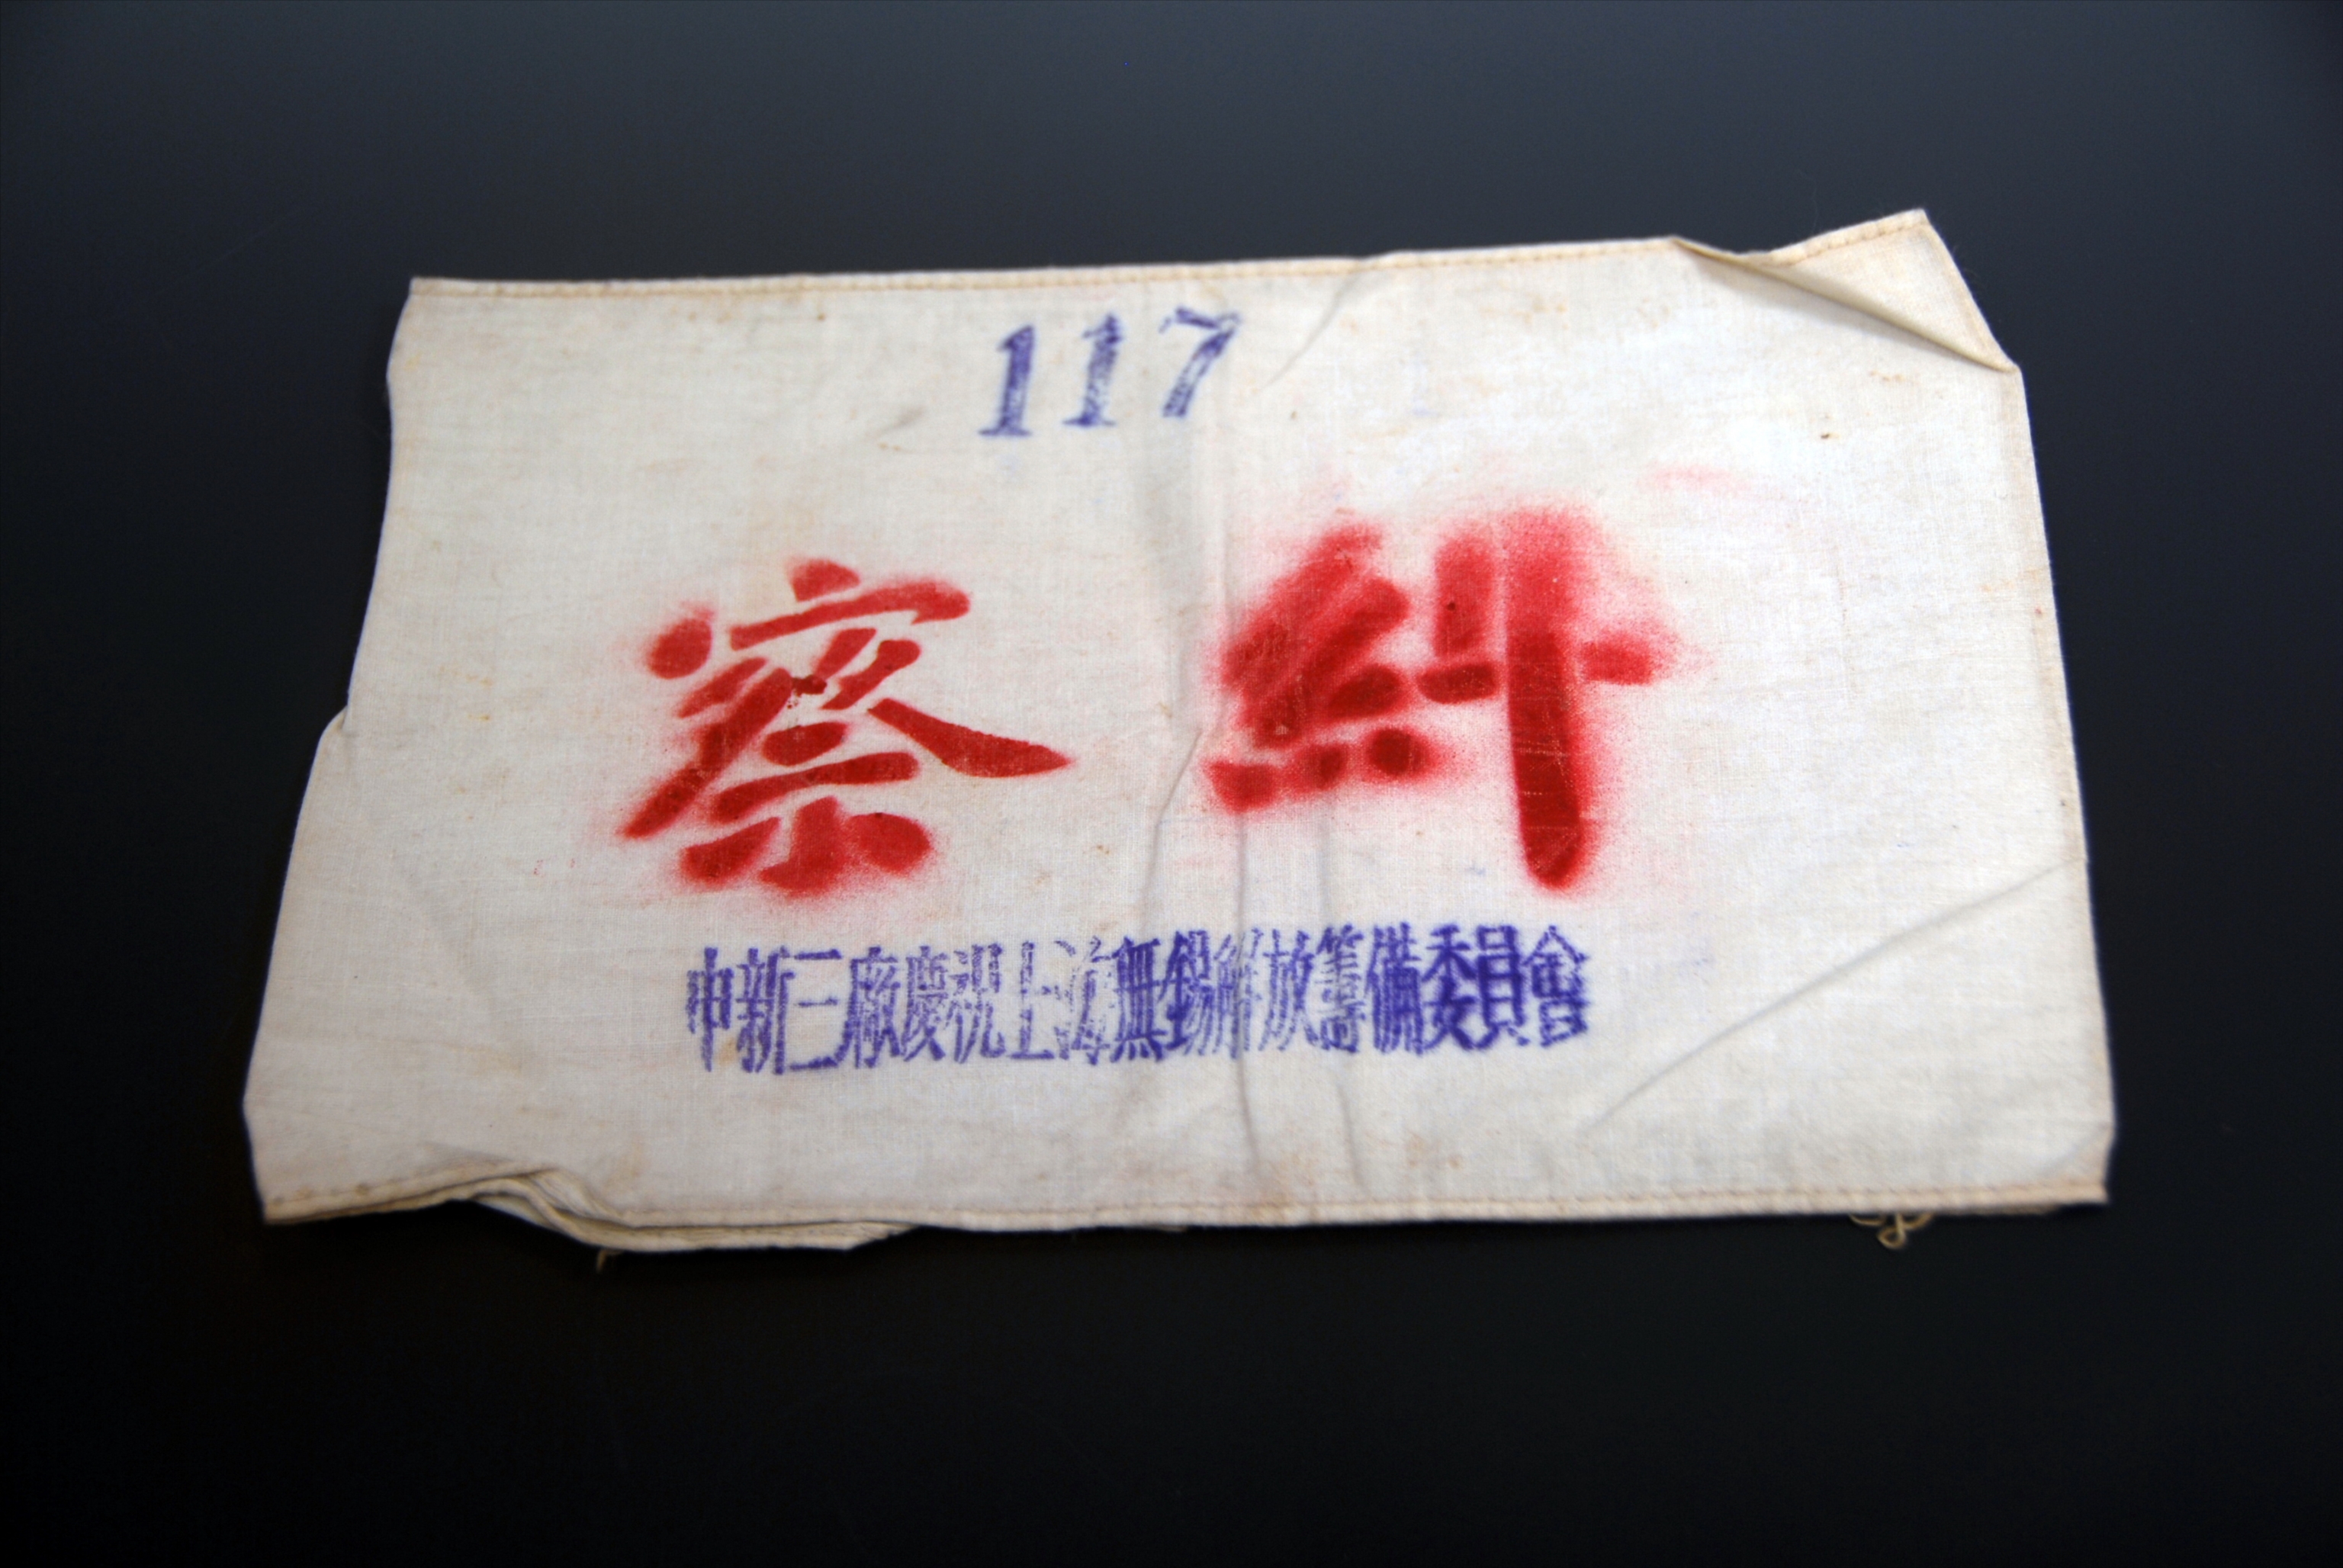 117
糾察
申新三廠慶祝上海無錫解放籌備委員會